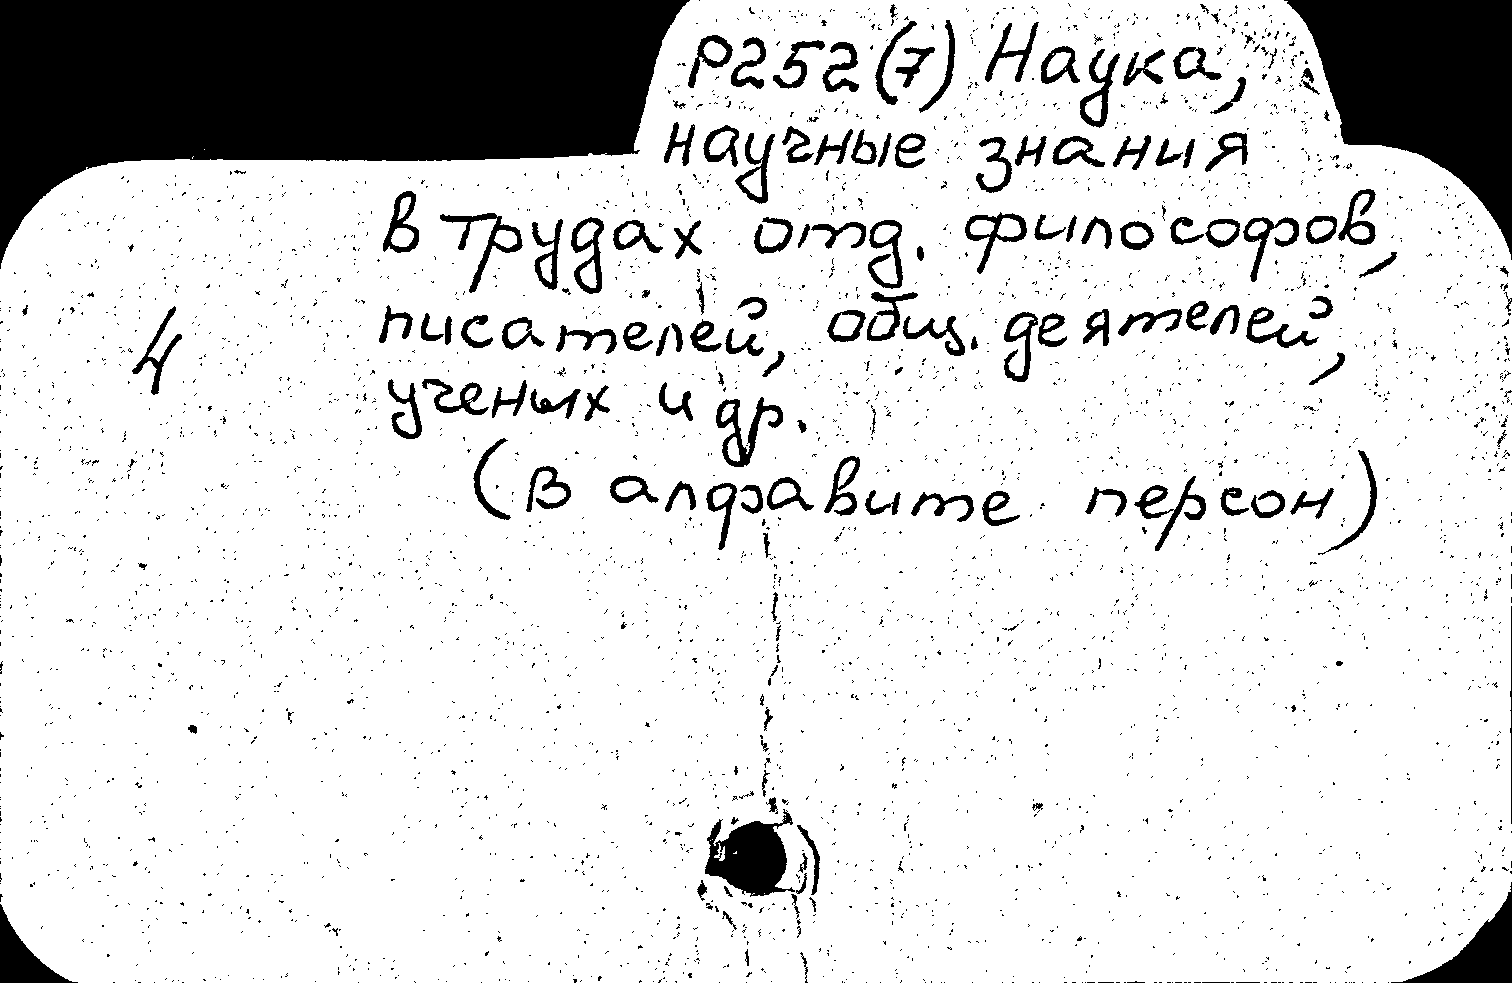 Р252(7) Наука,
научные знания
в трудах отд. философов,
писателей, общ. деятелей,
4
ученых и др.
(в алфавите персон)